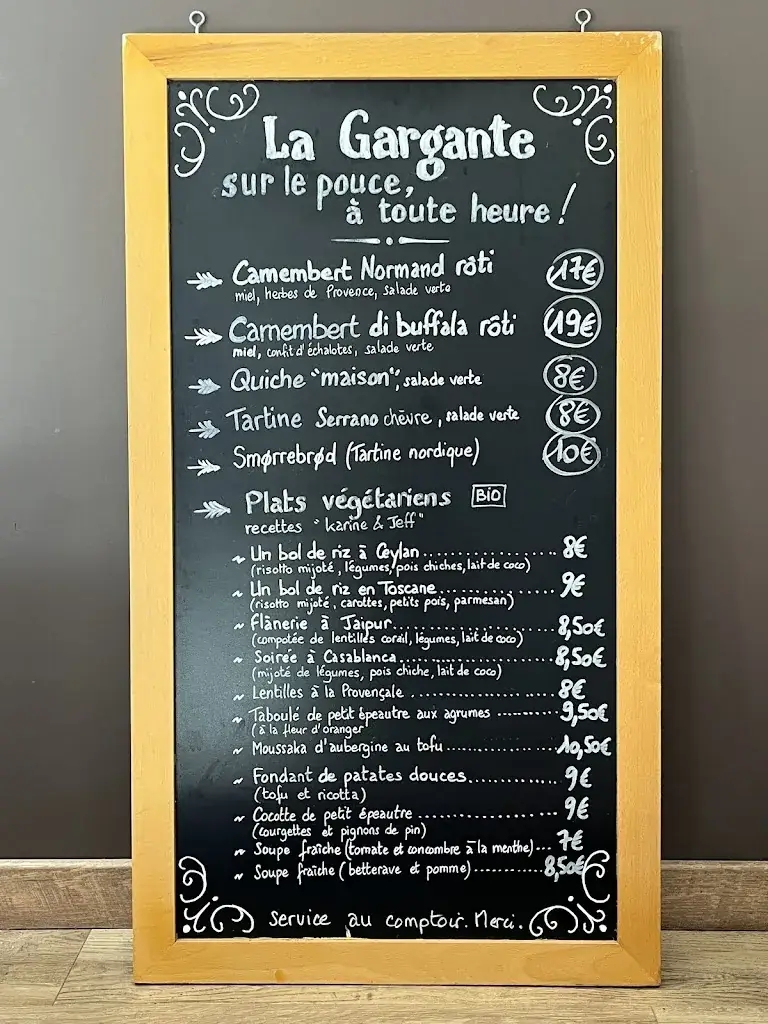 La Gargante
sur le pouce,
à toute heure !
Camembert Normand rôti 17€
miel, herbes de Provence, salade verte
Camembert di buffala rôti 19€
miel, confit d'échalotes, salade verte
Quiche "maison", salade verte 8€
Tartine Serrano chèvre, salade verte 8€
Smørrebrød (Tartine nordique) 10€
Plats végétariens BIO
recettes "Karine & Jeff"
~ Un bol de riz à Ceylan.................. 8€
(risotto mijoté, légumes, pois chiches, lait de coco)
~ Un bol de riz en Toscane............... 9€
(risotto mijoté, carottes, petits pois, parmesan)
~ Flânerie à Jaipur....................... 8,50€
(compotée de lentilles corail, légumes, lait de coco)
~ Soirée à Casablanca.................... 8,50€
(mijoté de légumes, pois chiche, lait de coco)
~ Lentilles à la Provençale .................. 8€
~ Taboulé de petit épeautre aux agrumes ......... 9,50€
(à la fleur d'oranger
~ Moussaka d'aubergine au tofu............... 10,50€
~ Fondant de patates douces............ 9€
(tofu et ricotta)
~ Cocotte de petit épeautre .................. 9€
(courgettes et pignons de pin)
~ Soupe fraîche (tomate et concombre à la menthe)... 7€
~ Soupe fraîche (betterave et pomme)........... 8,50€
Service au comptoir. Merci.